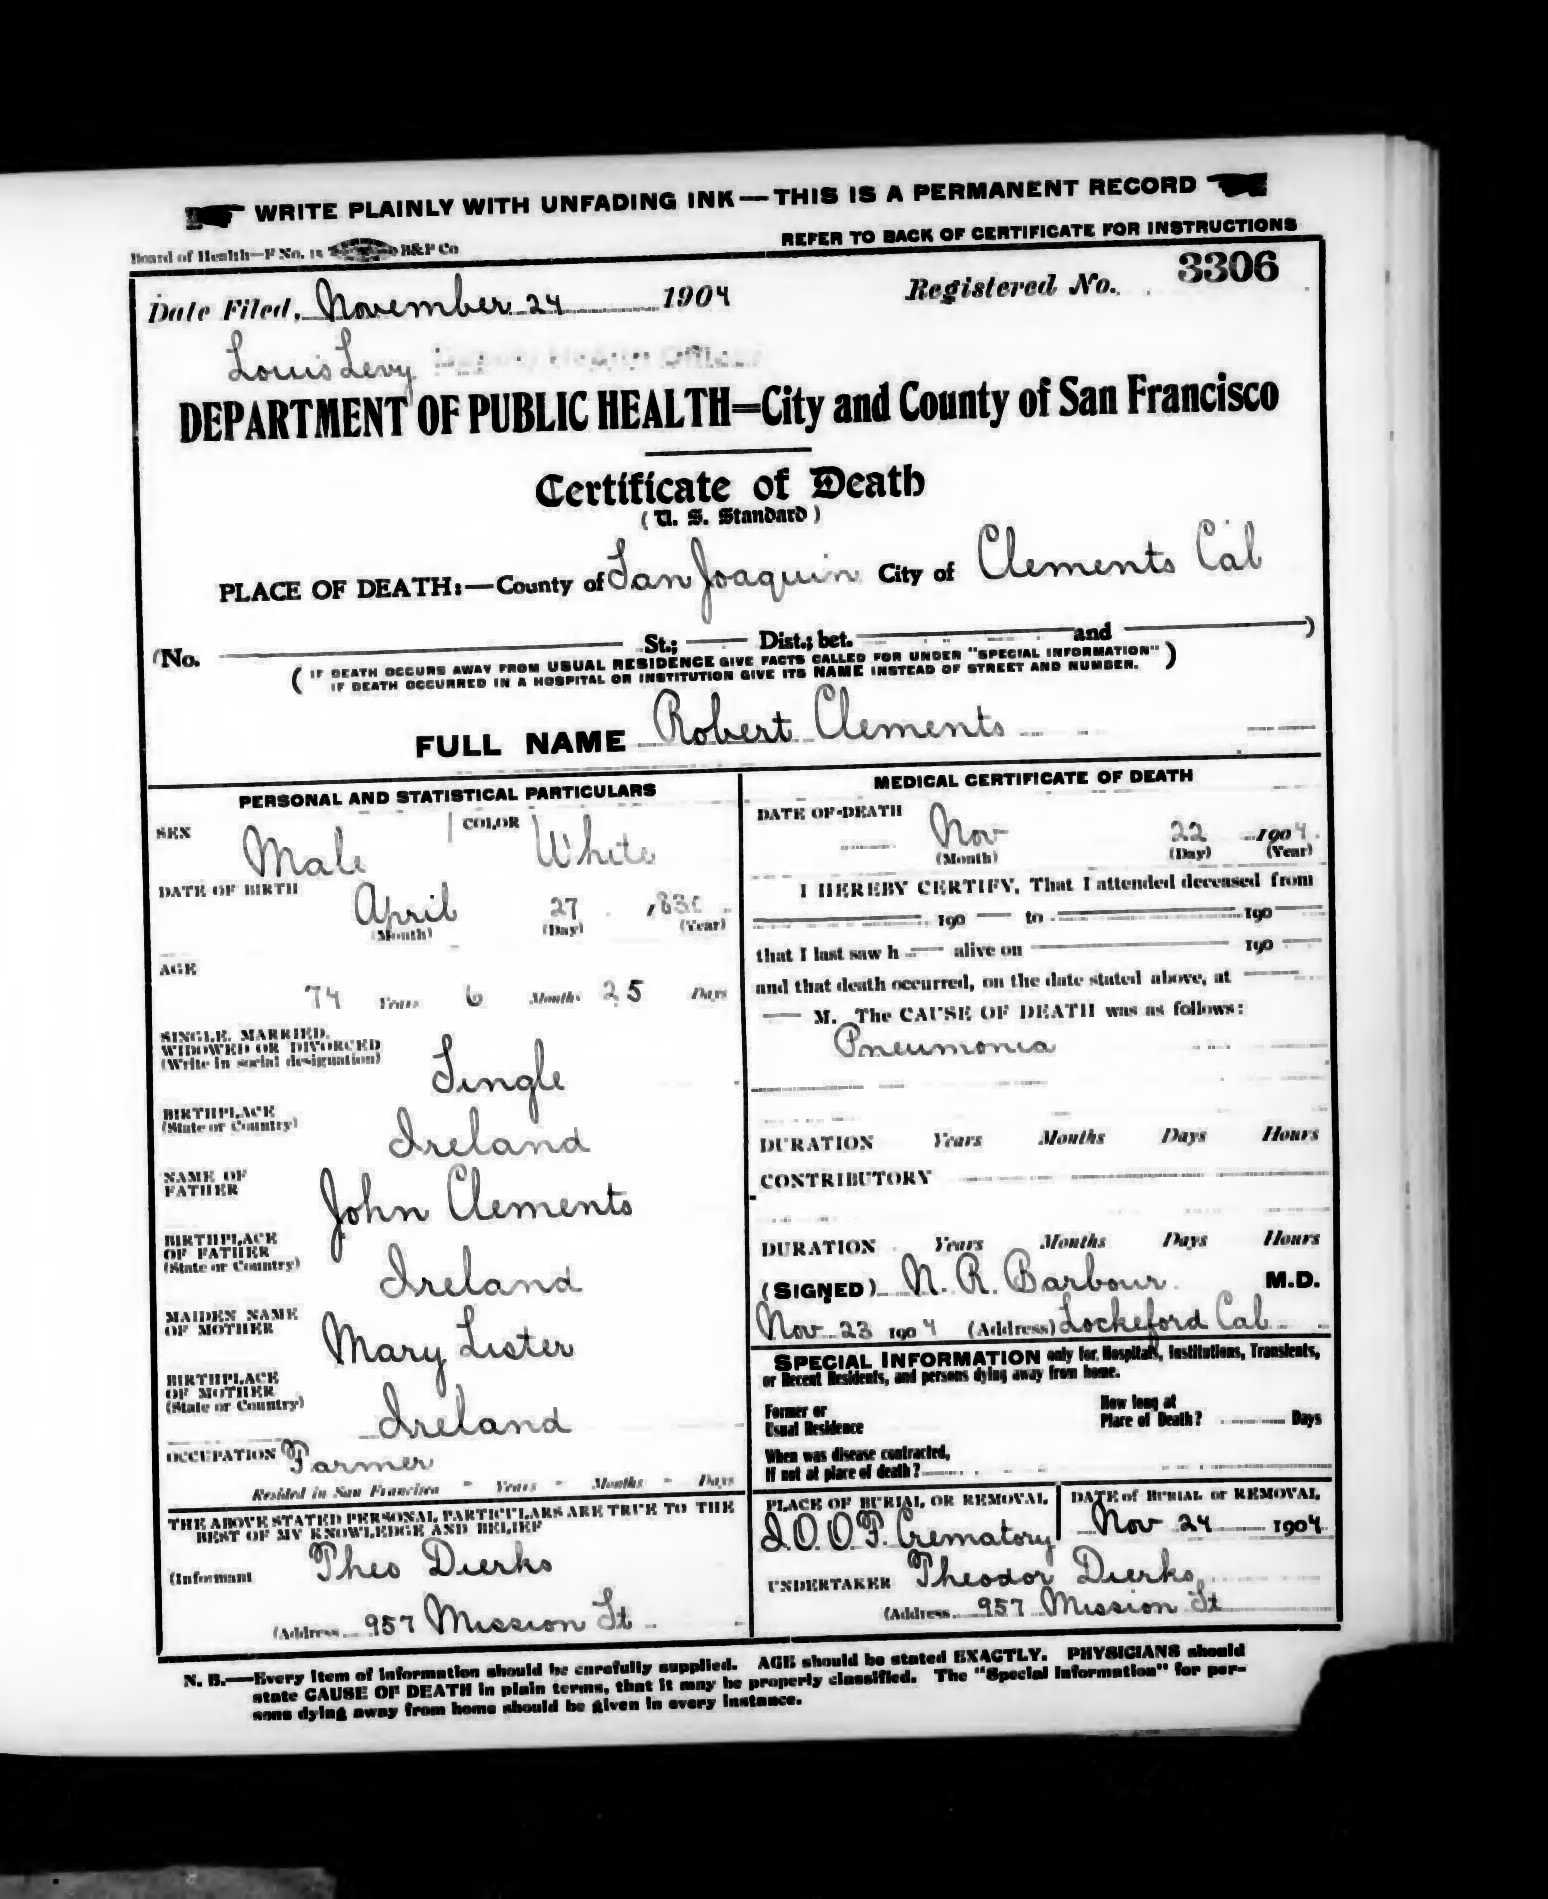 WRITE PLAINLY WITH UNFADING INK — THIS IS A PERMANENT RECORD
Board of Health—F No. 15 B&P Co
REFER TO BACK OF CERTIFICATE FOR INSTRUCTIONS
Date Filed, November 24 1904 Registered No. 3306
Louis Levy Deputy Health Officer
DEPARTMENT OF PUBLIC HEALTH=City and County of San Francisco
Certificate of Death
(U. S. Standard)
PLACE OF DEATH:—County of San Joaquin City of Clements Cal
(No. St.; Dist.; bet. and )
( IF DEATH OCCURS AWAY FROM USUAL RESIDENCE GIVE FACTS CALLED FOR UNDER "SPECIAL INFORMATION" )
IF DEATH OCCURRED IN A HOSPITAL OR INSTITUTION GIVE ITS NAME INSTEAD OF STREET AND NUMBER.
FULL NAME Robert Clements
PERSONAL AND STATISTICAL PARTICULARS
SEX Male COLOR White
DATE OF BIRTH April 27 1830
(Month) (Day) (Year)
AGE
74 Years 6 Months 25 Days
SINGLE, MARRIED,
WIDOWED OR DIVORCED
(Write in social designation) Single
BIRTHPLACE
(State or Country) Ireland
NAME OF
FATHER John Clements
BIRTHPLACE
OF FATHER
(State or Country) Ireland
MAIDEN NAME
OF MOTHER Mary Lister
BIRTHPLACE
OF MOTHER
(State or Country) Ireland
OCCUPATION Farmer
Resided in San Francisco - Years - Months - Days
THE ABOVE STATED PERSONAL PARTICULARS ARE TRUE TO THE
BEST OF MY KNOWLEDGE AND BELIEF
(Informant Theo Dierks
(Address 957 Mission St
MEDICAL CERTIFICATE OF DEATH
DATE OF DEATH Nov 22 1904
(Month) (Day) (Year)
I HEREBY CERTIFY, That I attended deceased from
190 to 190
that I last saw h alive on 190
and that death occurred, on the date stated above, at
M. The CAUSE OF DEATH was as follows:
Pneumonia
DURATION Years Months Days Hours
CONTRIBUTORY
DURATION Years Months Days Hours
(SIGNED) N. R. Barbour M.D.
Nov 23 1904 (Address) Lockeford Cal
SPECIAL INFORMATION only for Hospitals, Institutions, Transients,
or Recent Residents, and persons dying away from home.
Former or
Usual Residence
How long at
Place of Death? Days
When was disease contracted,
If not at place of death?
PLACE OF BURIAL OR REMOVAL DATE of BURIAL or REMOVAL
I.O.O.F. Crematory Nov 24 1904
UNDERTAKER Theodor Dierks
(Address 957 Mission St
N. B.—Every item of information should be carefully supplied. AGE should be stated EXACTLY. PHYSICIANS should
state CAUSE OF DEATH in plain terms, that it may be properly classified. The "Special Information" for per-
sons dying away from home should be given in every instance.